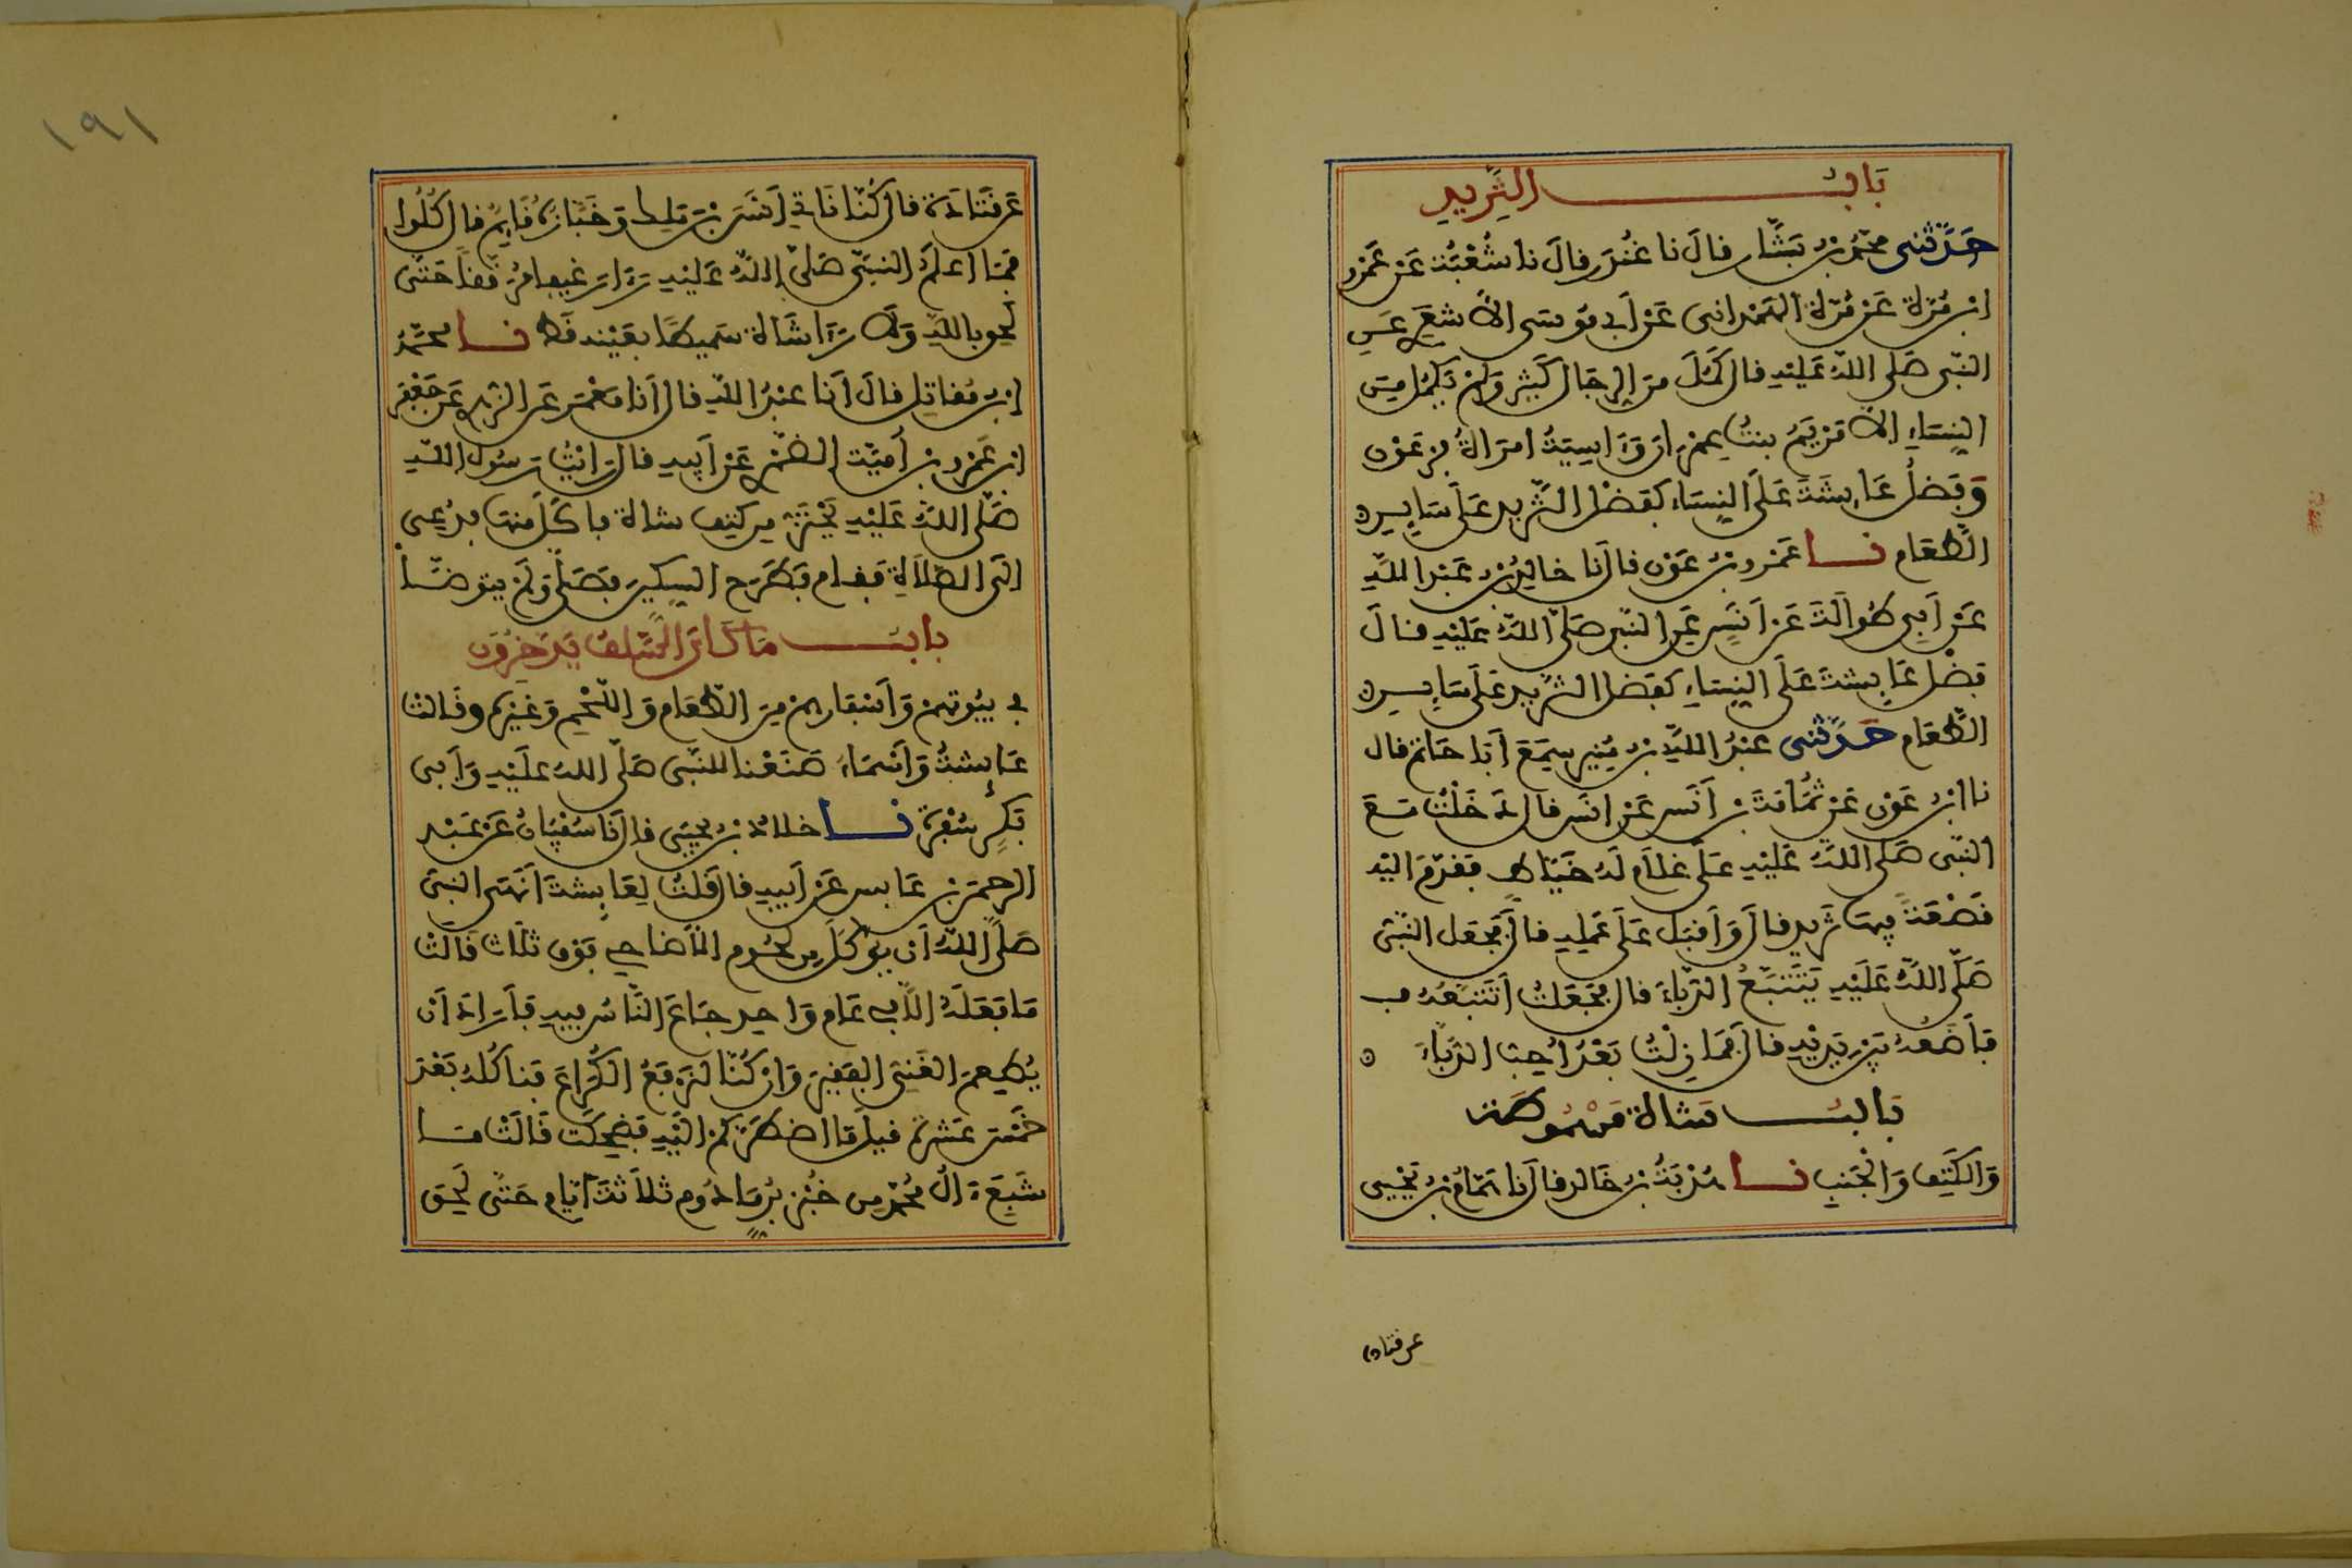 بَابُ الثَّرِيدِ
حَدَّثَنِى محمّدُ بنُ بَشَّار قالَ نا غُنْدَر قالَ نا شُعْبَة عَنْ عَمْرِو
ابْنِ مُرَّة عَنْ مُرَّة الهَمْدَانِى عَنْ أَبِى مُوسَى الأَشْعَرِى عَنِ
النَّبِى صَلَى اللهُ عَلَيْهِ قال كَمُلَ مِنَ الرِجَال كَثِير وَلَمْ يَكْمُل مِنَ
النِّسَاءِ إِلاَّ مَرْيَمُ بِنْتُ عِمْرَانَ وَءَاسِيَةُ امْرَأَةُ فِرْعَوْن
وَفَضْلُ عَائِشَةَ عَلَى النِسَاءِ كَفَضْلِ الثَّرِيدِ عَلَى سَايِرِ
الطَّعَام نا عَمْرو بنُ عَوْن قال نا خَالِدُ بنُ عَبْدِ اللهِ
عَنْ أَبِى طُوَالَةَ عَنْ أَنَسٍ عَنِ النَّبِى صَلَى اللهُ عَلَيْهِ قالَ
فَضْلُ عَائِشَةَ عَلَى النِسَاءِ كَفَضْلِ الثَّرِيدِ عَلَى سَايِرِ
الطَّعَام حَدَّثَنِى عَبْدُ اللهِ بنُ مُنِير سَمِعَ أَبَا حَاتم قال
نا ابنُ عَوْن عَنْ ثُمَامَةَ بْنِ أَنَس عَنْ أَنَس قال دَخَلْتُ مَعَ
النَّبِى صَلَى اللهُ عَلَيْهِ عَلَى غُلاَمٍ لَهُ خَيَّاط فَقَدَّمَ اليْهِ
قَصْعَةً فِيهَا ثَرِيد قالَ وَأَقْبَلَ عَلَى عَمَلِهِ قالَ فَجَعَلَ النَّبِى
صَلَّى اللهُ عَلَيْهِ يَتَتَبَّعُ الدُّبَّاءَ قال فَجَعَلْتُ أَتَتَبَّعُهُ فـ
فَأَضَعُهُ بَيْنَ يَدَيْهِ قالَ فَمَا زِلْتُ بَعْدُ أُحِبُّ الدُّبَّاءَ
بَابُ شَاة مَسْمُوطَة
وَالكَتِفِ وَالْجَنْبِ نا هُدْبَةُ بْنُ خَالِد قال نا هَمَّامُ بنُ يَحْيَى
عن قتادة
١٩١
عَنْ قَتَادَة قال كُنَّا نَاتِى أَنَسَ بْنَ مَلِك وَخَبَّازُهُ قَايِم قال كُلُوا
فَمَا أَعْلَمُ النبيَّ صَلَّى اللهُ عَلَيْهِ رَأَى رَغِيفا مُرَقَّقاً حَتَّى
لَحِقَ باللهِ وَلاَ رَأَى شَاة سَمِيطًا بِعَيْنِهِ قَط نا محَمَّدُ
ابْنُ مُقَاتِل قالَ أَنَا عَبْدُ اللهِ قال أَنَا مَعْمَر عَنِ الزُّهْرِى عَنْ جَعْفَر
ابنِ عَمْرِو بْنِ أُمَيَّةَ الضَّمْرِى عَنْ أَبِيهِ قال رَأَيْتُ رَسُولَ اللهِ
صَلَّى اللهُ عَلَيْهِ يَحْتَزُّ مِن كَتِفِ شاة فأكَلَ مِنْهَا فدُعِىَ
الَى الصَّلاَةِ فَقَام فَطَرَحَ السِكِّينَ فَصَلَّى وَلَمْ يتوضَّأْ
بابُ مَا كَانَ السَّلَفُ يَدَّخِرُون
فى بُيُوتِهِمْ وَأَسْفَارِهِمْ مِنَ الطَّعَام وَاللَّحْمِ وَغَيْرِهِ وقَالتْ
عَائِشَةُ وَأَسْمَاءُ صَنَعْنا للنَّبِى صَلَّى اللهُ عَلَيْهِ وَأَبِى
بَكْرٍ سُفْرَة نا خلادُ بنُ يحيى قال نَا سُفْيَانُ عَنْ عَبْدِ
الرحمنِ بْنِ عَابس عَنْ أَبِيهِ قال قُلْتُ لِعَائِشَةَ أَنَهَى النبيّ
صَلَّى اللهُ أَن يُؤْكَلَ مِن لُحُوم الأضَاحِى فَوْقَ ثَلاَث قَالَتْ
مَا فَعَلَهُ الاَّ فِى عَام وَاحِد جَاعَ النَّاسُ فِيهِ فَأَرَادَ أن
يُطْعِمَ الغَنِىُّ الفَقِيرَ وَإِنْ كُنَّا لَنَرْفَعُ الكُرَاعَ فَنَاكُلُهُ بَعْدَ
خَمْسَ عَشْرَة قيل مَا اضْطَرَّكُمْ إِلَيْهِ فَضَحِكَتْ قَالَتْ مَا
شَبِعَ ءَالُ مُحَمَّدٍ مِن خُبْزِ بُرّ مَادُوم ثلاَثَةَ أَيَّام حَتَّى لَحِقَ